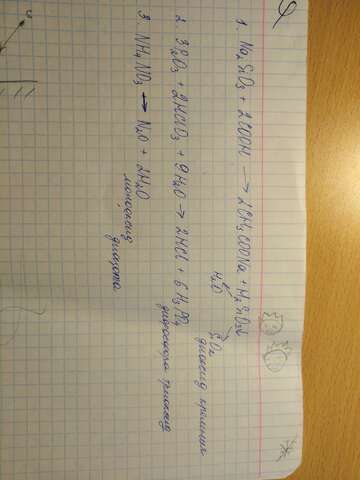 1. Na₂SiO₃ + 2COOH → 2CH₃COONa + H₂SiO₃↓
H₂O SiO₂
диоксид кремния
2. 3P₂O₃ + 2HClO₃ + 9H₂O → 2HCl + 6H₃PO₄
дифосфора триоксид
3. NH₄NO₃ → N₂O + 2H₂O
монооксид
диазота